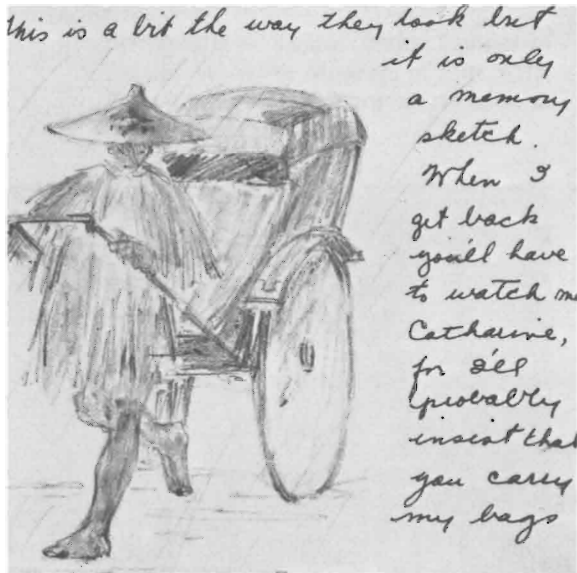 This is a bit the way they look but
it is only
a memory
sketch.
When I
get back
you'll have
to watch me
Catharine,
for I'll
probably
insist that
you carry
my bags